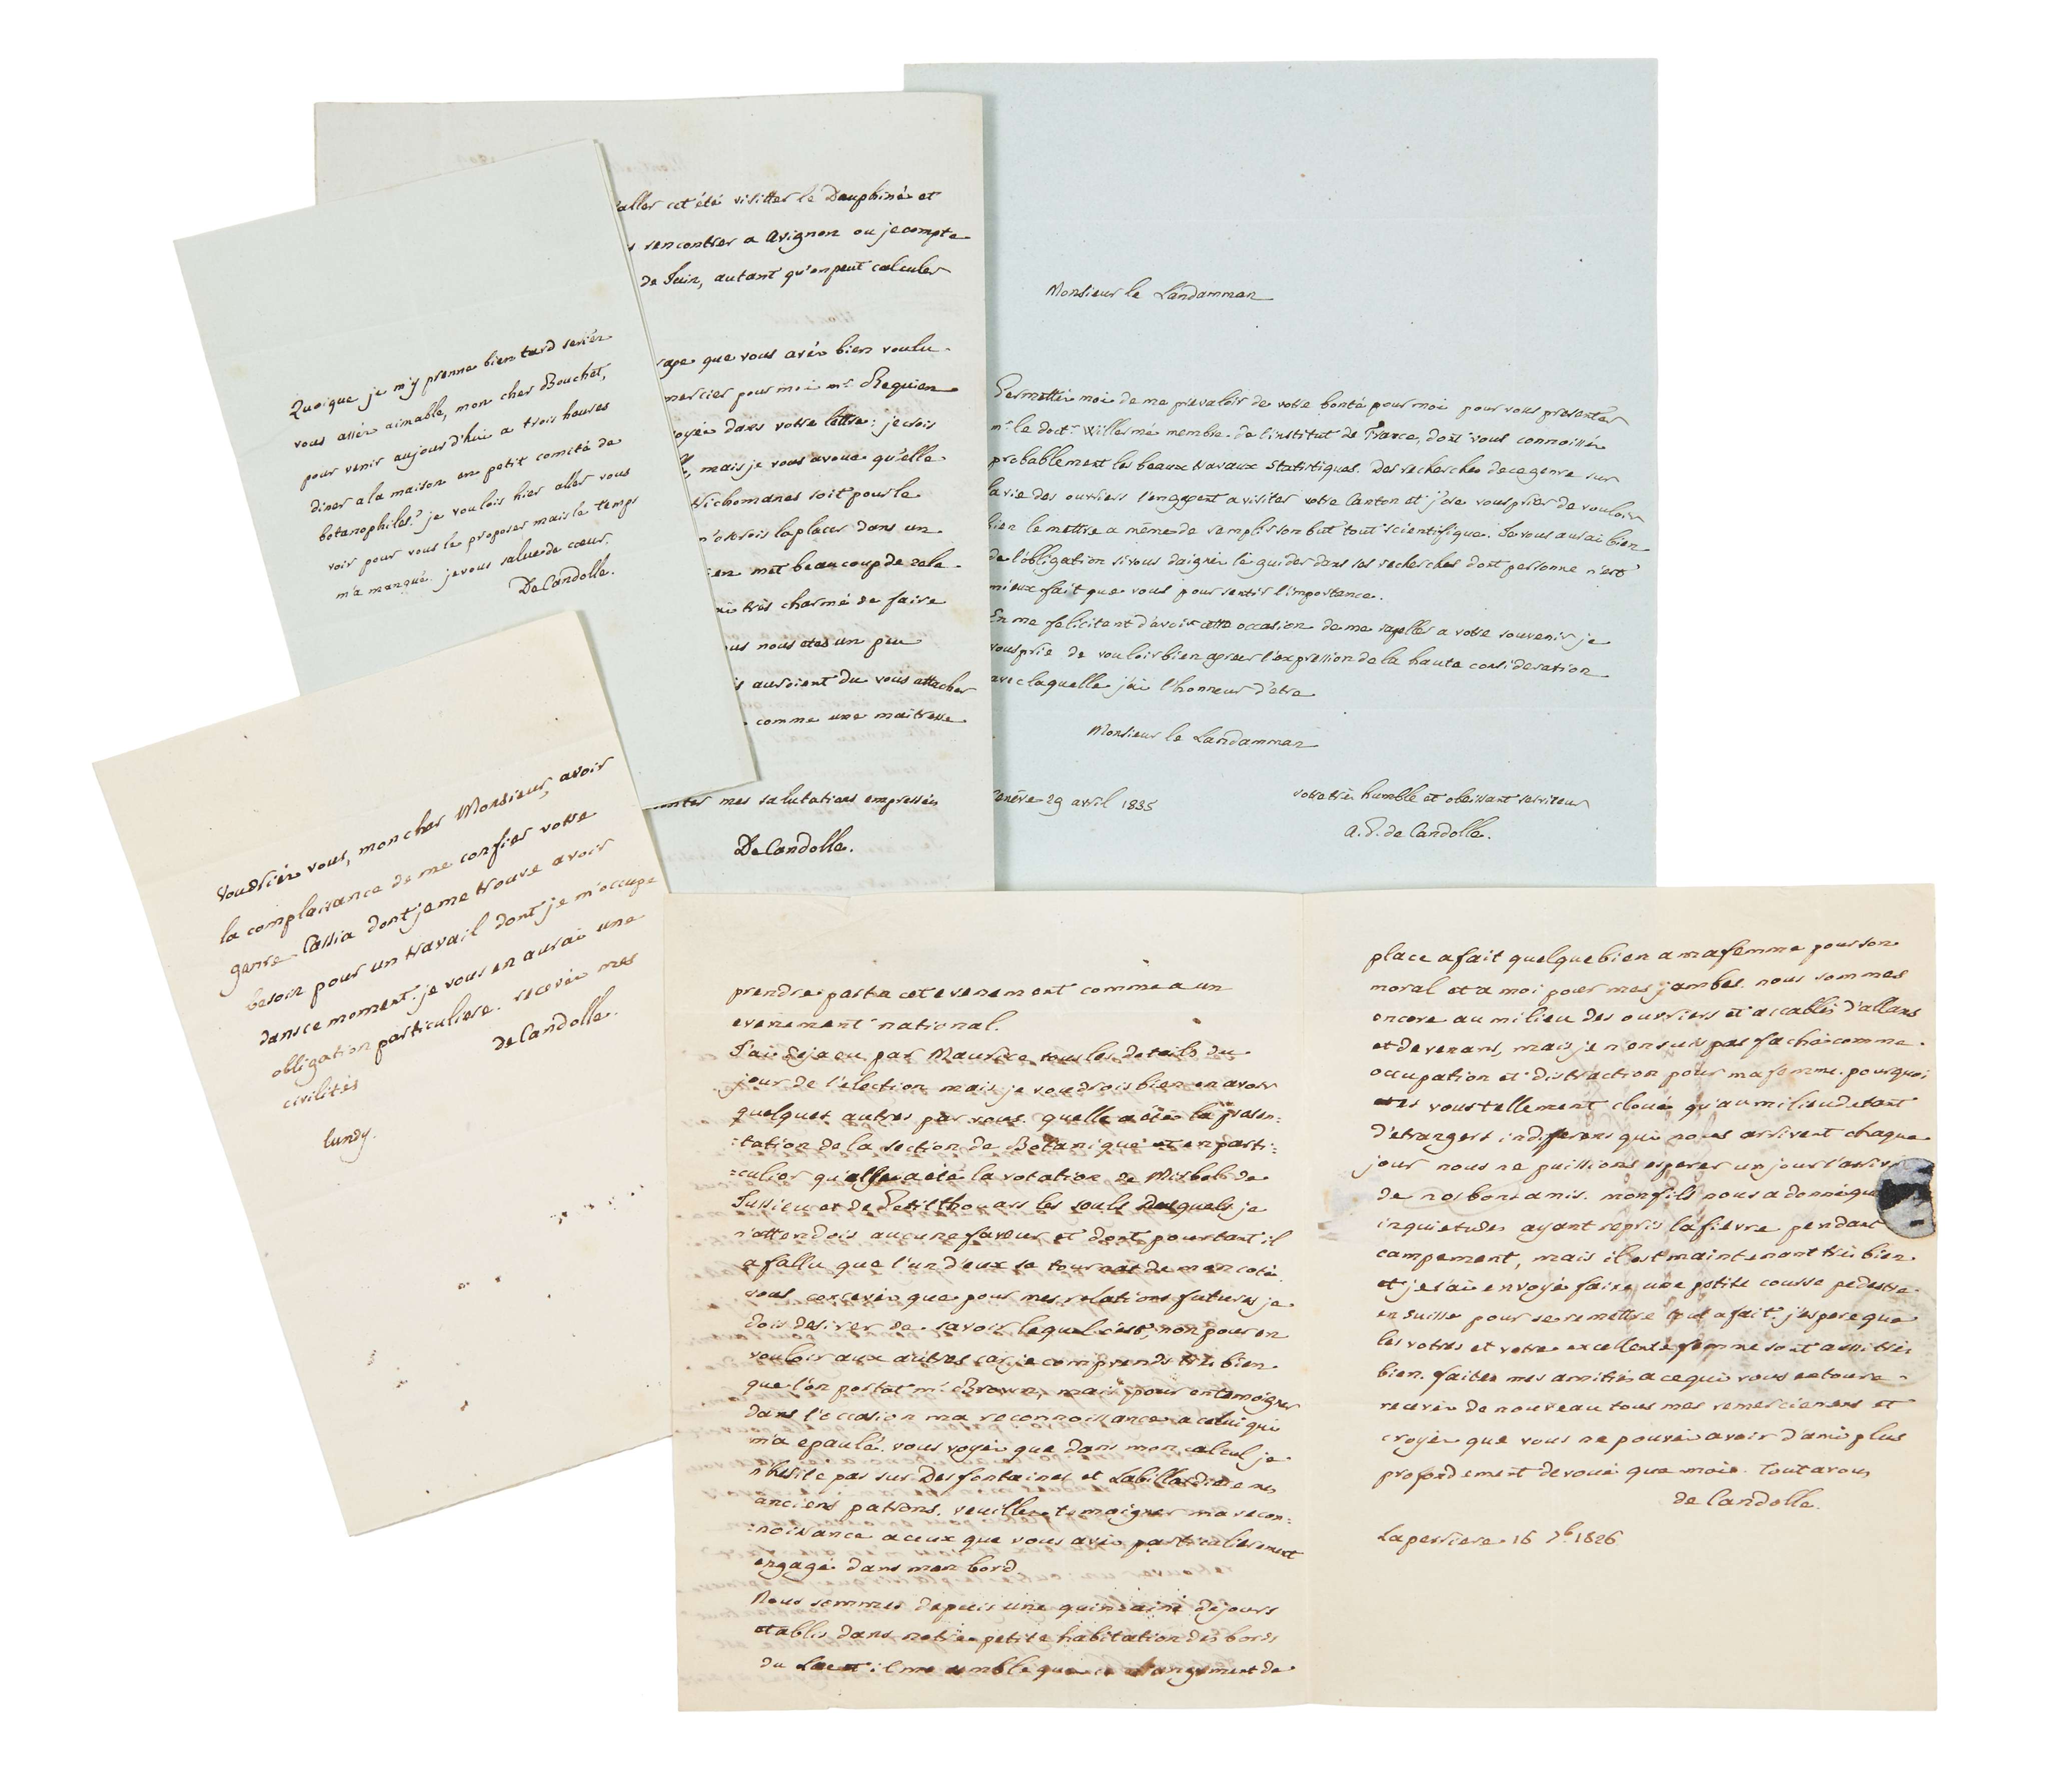 Quoique je m'y prenne bien tard seriéz
vous asséz aimable, mon cher Bouchet,
pour venir aujourd'hui a trois heures
diner a la maison en petit comité de
botanophiles? je voulois hier aller vous
voir pour vous le proposer mais le temps
m'a manqué. je vous salue de cœur.
DeCandolle.
aller cet été visitter le Dauphiné et
rencontrer a Avignon ou je compte
de Juin, autant qu'on peut calculer
que vous avéz bien voulu
mercier pour moi mr. Requien
dans votre lettre: je crois
mais je vous avoue qu'elle
trichomanes soit pour le
n'oserois la placer dans un
met beaucoup de zele
très charmé de faire
nous etes un peu
auroient du vous attacher
comme une maitresse
mes salutations empressées
DeCandolle.
Monsieur le Landamman
Permettéz moi de me prevaloir de votre bonté pour moi pour vous presenter
mr. le doctr. Willermé membre de l'institut de France, dont vous connoisséz
probablement les beaux travaux statistiques. Des recherches de ce genre sur
la vie des ouvriers l'engagent a visiter votre Canton et j'ose vous prier de vouloir
bien le mettre a même de remplir son but tout scientifique. Je vous aurai bien
de l'obligation si vous daignéz le guider dans ses recherches dont personne n'est
mieux fait que vous pour sentir l'importance.
En me felicitant d'avoir cette occasion de me rapeller a votre souvenir je
vous prie de vouloir bien agreer l'expression de la haute consideration
avec laquelle j'ai l'honneur d'etre
Monsieur le Landamman
votre très humble et obeissant serviteur
enéve 29 avril 1835
A. P. de Candolle.
Voudriéz vous, mon cher Monsieur, avoir
la complaisance de me confier votre
genre Cassia dont je me trouve avoir
besoin pour un travail dont je m'occupe
dans ce moment. je vous en aurai une
obligation particuliere. recevéz mes
civilités
de Candolle.
lundy.
prendre part a cet evenement comme a un
evenement national.
J'ai deja eu par Maurice tous les details du
jour de l'election mais je voudrois bien en avoir
quelques autres par vous. quelle a été la presen:
:tation de la section de Botanique et en parti:
:culier qu'elle a été la votation de Mirbel de
Jussieu et de Petitthouars les seuls desquels je
n'attendois aucune faveur et dont pourtant il
a fallu que l'un d'eux se tournat de mon coté.
vous concevéz que pour mes relations futures je
dois desirer de savoir lequel c'est, non pour en
vouloir aux autres car je comprends très bien
que l'on portat mr. Brown, mais pour en temoigner
dans l'occasion ma reconnoissance a celui qui
m'a epaulé. vous voyéz que dans mon calcul je
n'hesite pas sur Desfontaines et Labillardiere mes
anciens patrons. veuilléz temoigner ma recon:
:noissance a ceux que vous aviéz particulierement
engagé dans mon bord.
Nous sommes depuis une quinzaine de jours
etablis dans notre petite habitation des bords
du Lac et il me semble que ce changement de
place a fait quelque bien a ma femme pour son
moral et a moi pour mes jambes. nous sommes
encore au milieu des ouvriers et accablés d'allans
et de venans, mais je n'en suis pas faché comme
occupation et distraction pour ma femme. pourquoi
etes vous tellement cloué qu'au milieu de tant
d'etrangers indifferens qui nous arrivent chaque
jour nous ne puissions esperer un jour l'arriv
de nos bons amis. mon fils nous a donné
inquietudes ayant repris la fievre pendant
campement, mais il est maintenant très bien
et je l'ai envoyé faire une petite course pedestre
en Suisse pour se remettre tout a fait. j'espere que
les votres et votre excellente femme sont aussi très
bien. faites mes amitiés a ce qui vous entoure
recevéz de nouveau tous mes remerciemens et
croyéz que vous ne pouvéz avoir d'ami plus
profondement devoué que moi. Tout a vous
de Candolle.
La perriere 16 7b. 1826